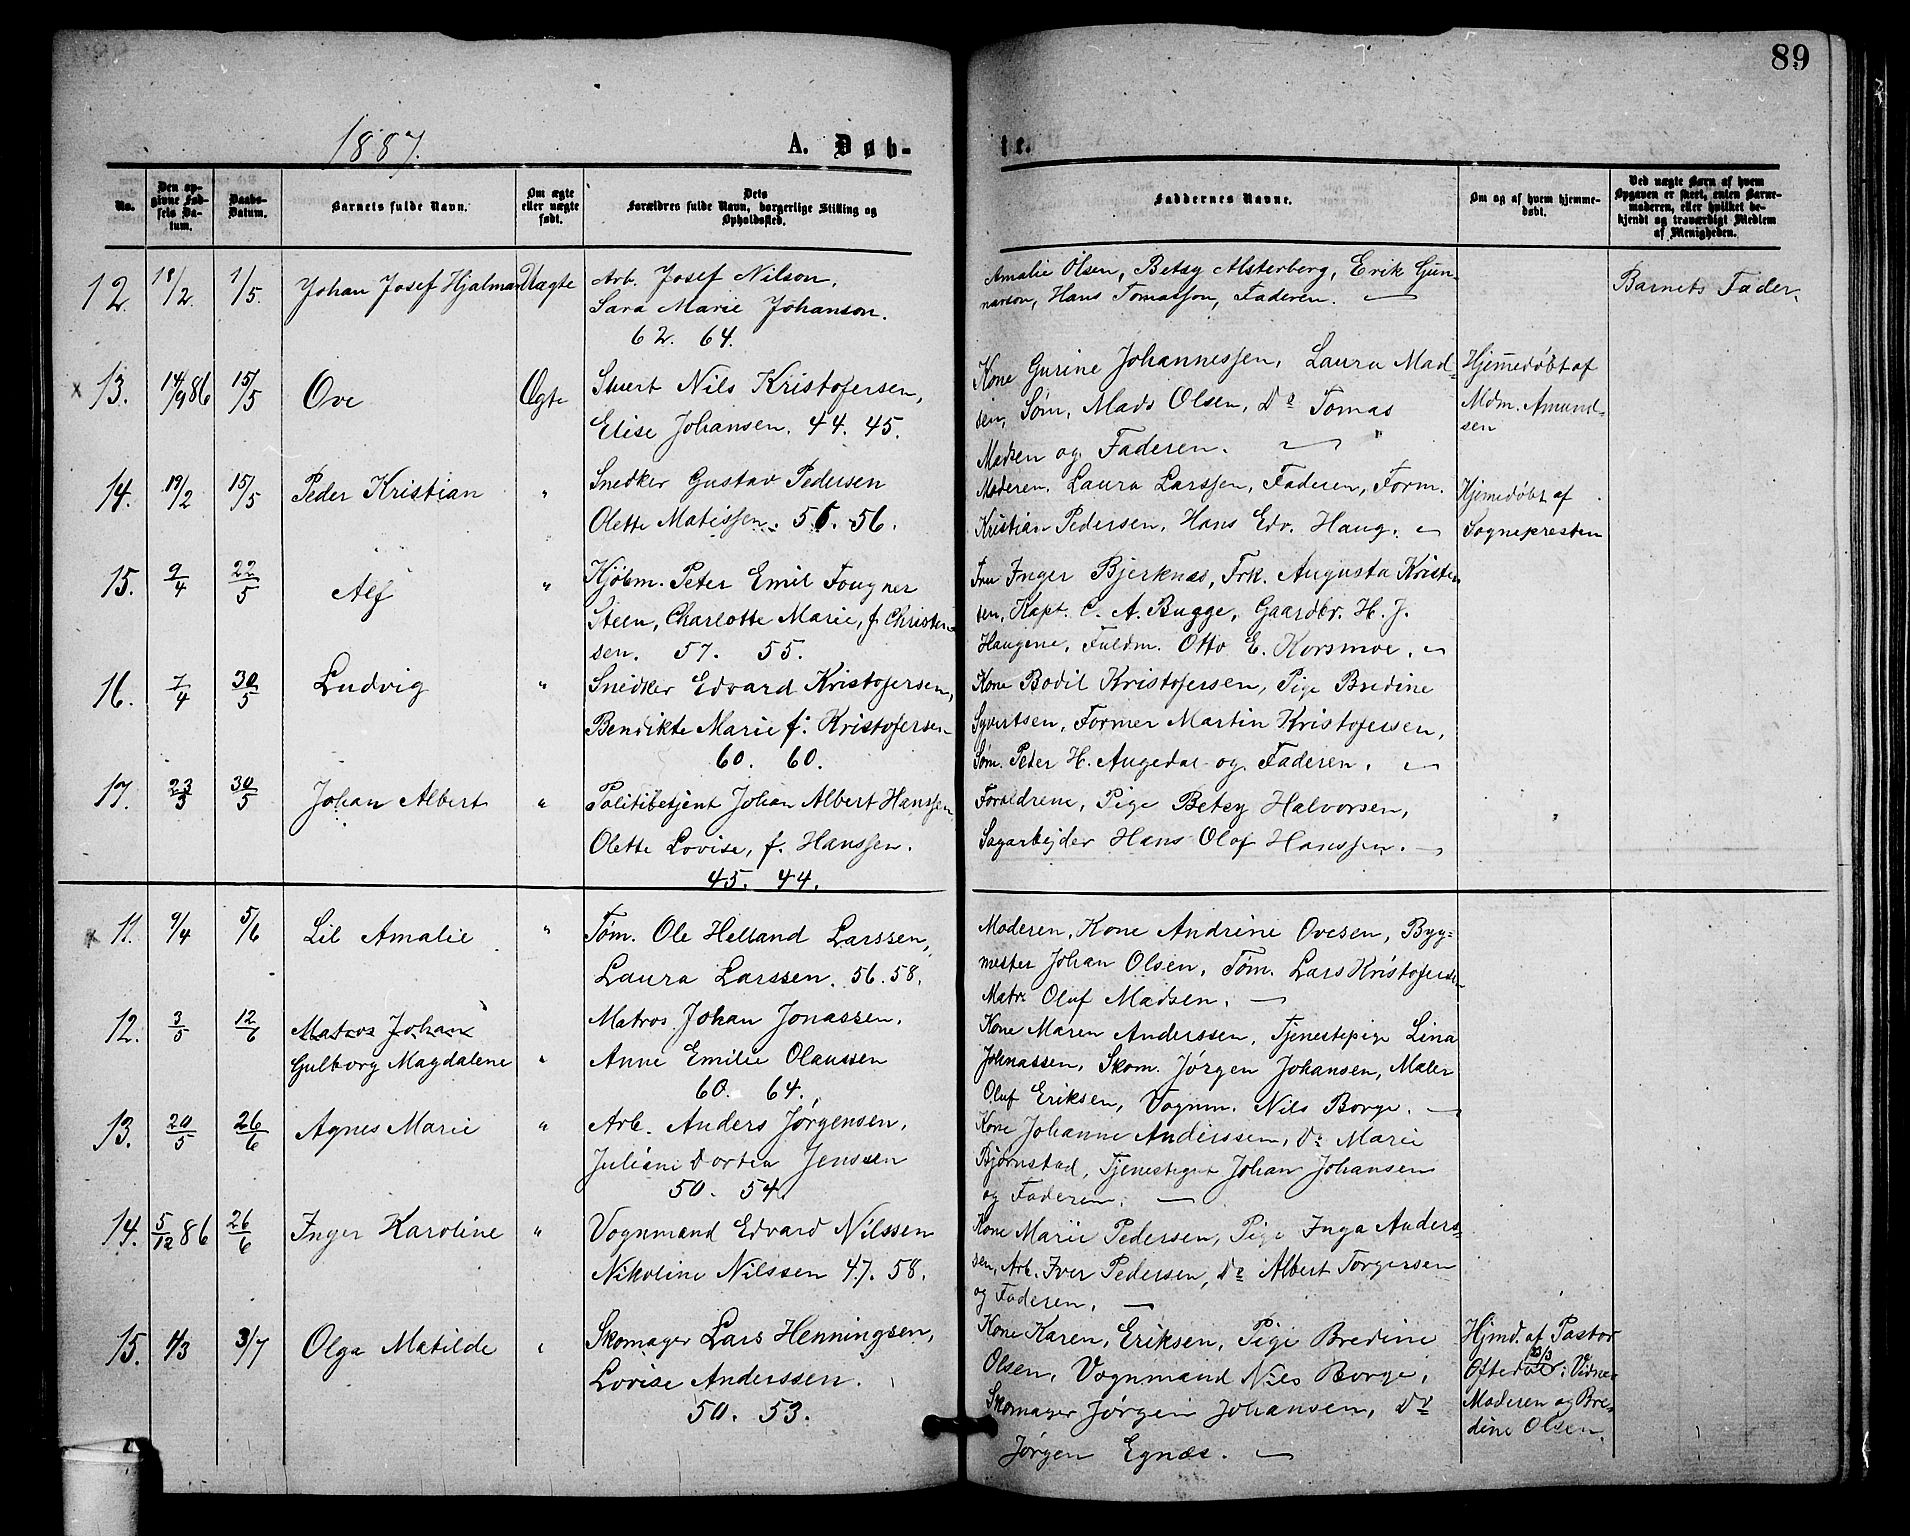 89
1887.
A. Døb-
te.
No.
Den op-
givne Fød-
sels Da-
tum.
Daabs-
Datum.
Barnets fulde Navn.
Om ægte
eller uægte
født.
Dets
Forældres fulde Navn, borgerlige Stilling og
Opholdssted.
Faddernes Navne.
Om og af hvem hjemme-
døbt.
Ved uægte Barn af hvem
Opgaven er skeet, enten Barne-
moderen, eller hvilket be-
kjendt og troværdigt Medlem
af Menigheden.
12 18/2. 1/5. Johan Josef Hjalmar Uægte Arb. Josef Nilson,
Sara Marie Johanson.
62. 64.
Amalie Olsen, Betsy Alsterberg, Erik Gun-
narson, Hans Tomasson, Faderen.
Barnets Fader.
x 13. 14/9 86 15/5 Ove Ægte Stuert Nils Kristofersen,
Elise Johansen. 44. 45.
Kone Gurine Johannessen, Laura Mad-
sen, Søm. Mads Olsen, Do Tomas
Madsen og Faderen.
Hjemedøbt af
Mdm. Amund-
sen
14. 19/2 15/5 Peder Kristian " Snedker Gustav Pedersen
Olette Matissen. 55. 56.
Moderen, Laura Larssen, Faderen, Form.
Kristian Pedersen, Hans Edv. Haug.
Hjemedøbt af
Sognepresten
15. 9/4 22/5 Alf " Kjøbm. Peter Emil Fougner
Steen, Charlotte Marie, f. Christen-
sen. 57. 55.
Fru Inger Bjerknæs, Frk. Augusta Kristen-
sen, Kapt. C. A. Bugge, Gaardbr. H. J.
Haugene, Fuldm. Otto E. Korsmoe.
16. 7/4 30/5 Ludvig " Snedker Edvard Kristofersen,
Bendikte Marie f. Kristofersen
60. 60.
Kone Bodil Kristofersen, Pige Bredine
Syvertsen, Former Martin Kristofersen,
Søm. Peter H. Augedal og Faderen.
17. 23/3 30/5 Johan Albert " Politibetjent Johan Albert Hanssen
Olette Lovise, f. Hanssen.
45. 44.
Forældrene, Pige Betsy Halvorsen,
Sagarbejder Hans Olaf Hanssen.
x 11. 9/4 5/6 Lil Amalie " Tøm. Ole Helland Larssen,
Laura Larssen. 56. 58.
Moderen, Kone Andrine Ovesen, Byg-
mester Johan Olsen, Tøm. Lars Kristofersen
Matr. Oluf Madsen.
12. 3/5 12/6 Matros Johan
Gulborg Magdalene " Matros Johan Jonassen,
Anne Emilie Olaussen
60. 64.
Kone Maren Anderssen, Tjenestepige Lina
Johnassen, Skom. Jørgen Johansen, Maler
Oluf Eriksen, Vognm. Nils Borge.
13. 20/5 26/6 Agnes Marie " Arb. Anders Jørgensen,
Juliane Dortea Jenssen
50. 54.
Kone Johanne Anderssen, Do Marie
Bjørnstad, Tjenestegut Johan Johansen
og Faderen.
14. 5/12 86 26/6 Inger Karoline " Vognmand Edvard Nilssen
Nikoline Nilssen 47. 58.
Kone Marie Pedersen, Pige Inga Anders-
sen, Arb. Iver Pedersen, Do Albert Torgersen
og Faderen.
15. 4/3 3/7 Olga Matilde " Skomager Lars Henningsen,
Lovise Anderssen.
50. 53.
Kone Karen Eriksen, Pige Bredine
Olsen, Vognmand Nils Borge,
Skomager Jørgen Johansen, Do
Jørgen Egnæs.
Hjmd. af Pastor
Oftedal: Vidner
Moderen og Bre-
dine Olsen.